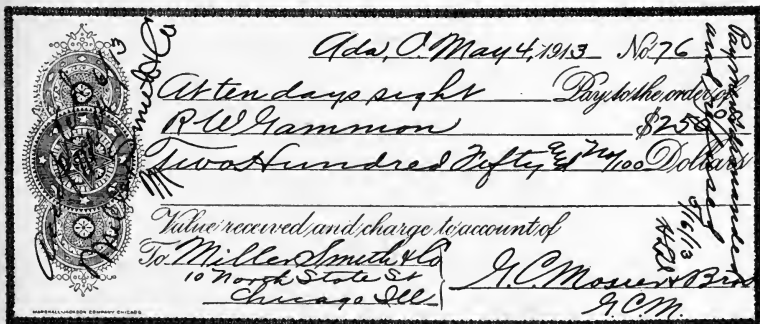 Ada, O. May 4, 1913 No. 76
At ten days sight Pay to the order of
R W Gammon $250
Two Hundred Fifty and no/100 Dollars
Value received and charge to account of
To Miller Smith & Co
10 North State St
Chicago Ill
G. C. Mosier & Bros
G. C. M.
Payment demanded
and refused
5/16/13
Miller Smith & Co
MARSHALL-JACKSON COMPANY CHICAGO